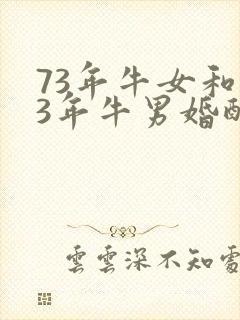 73年牛女和
3年牛男婚配
雲雲深不知處